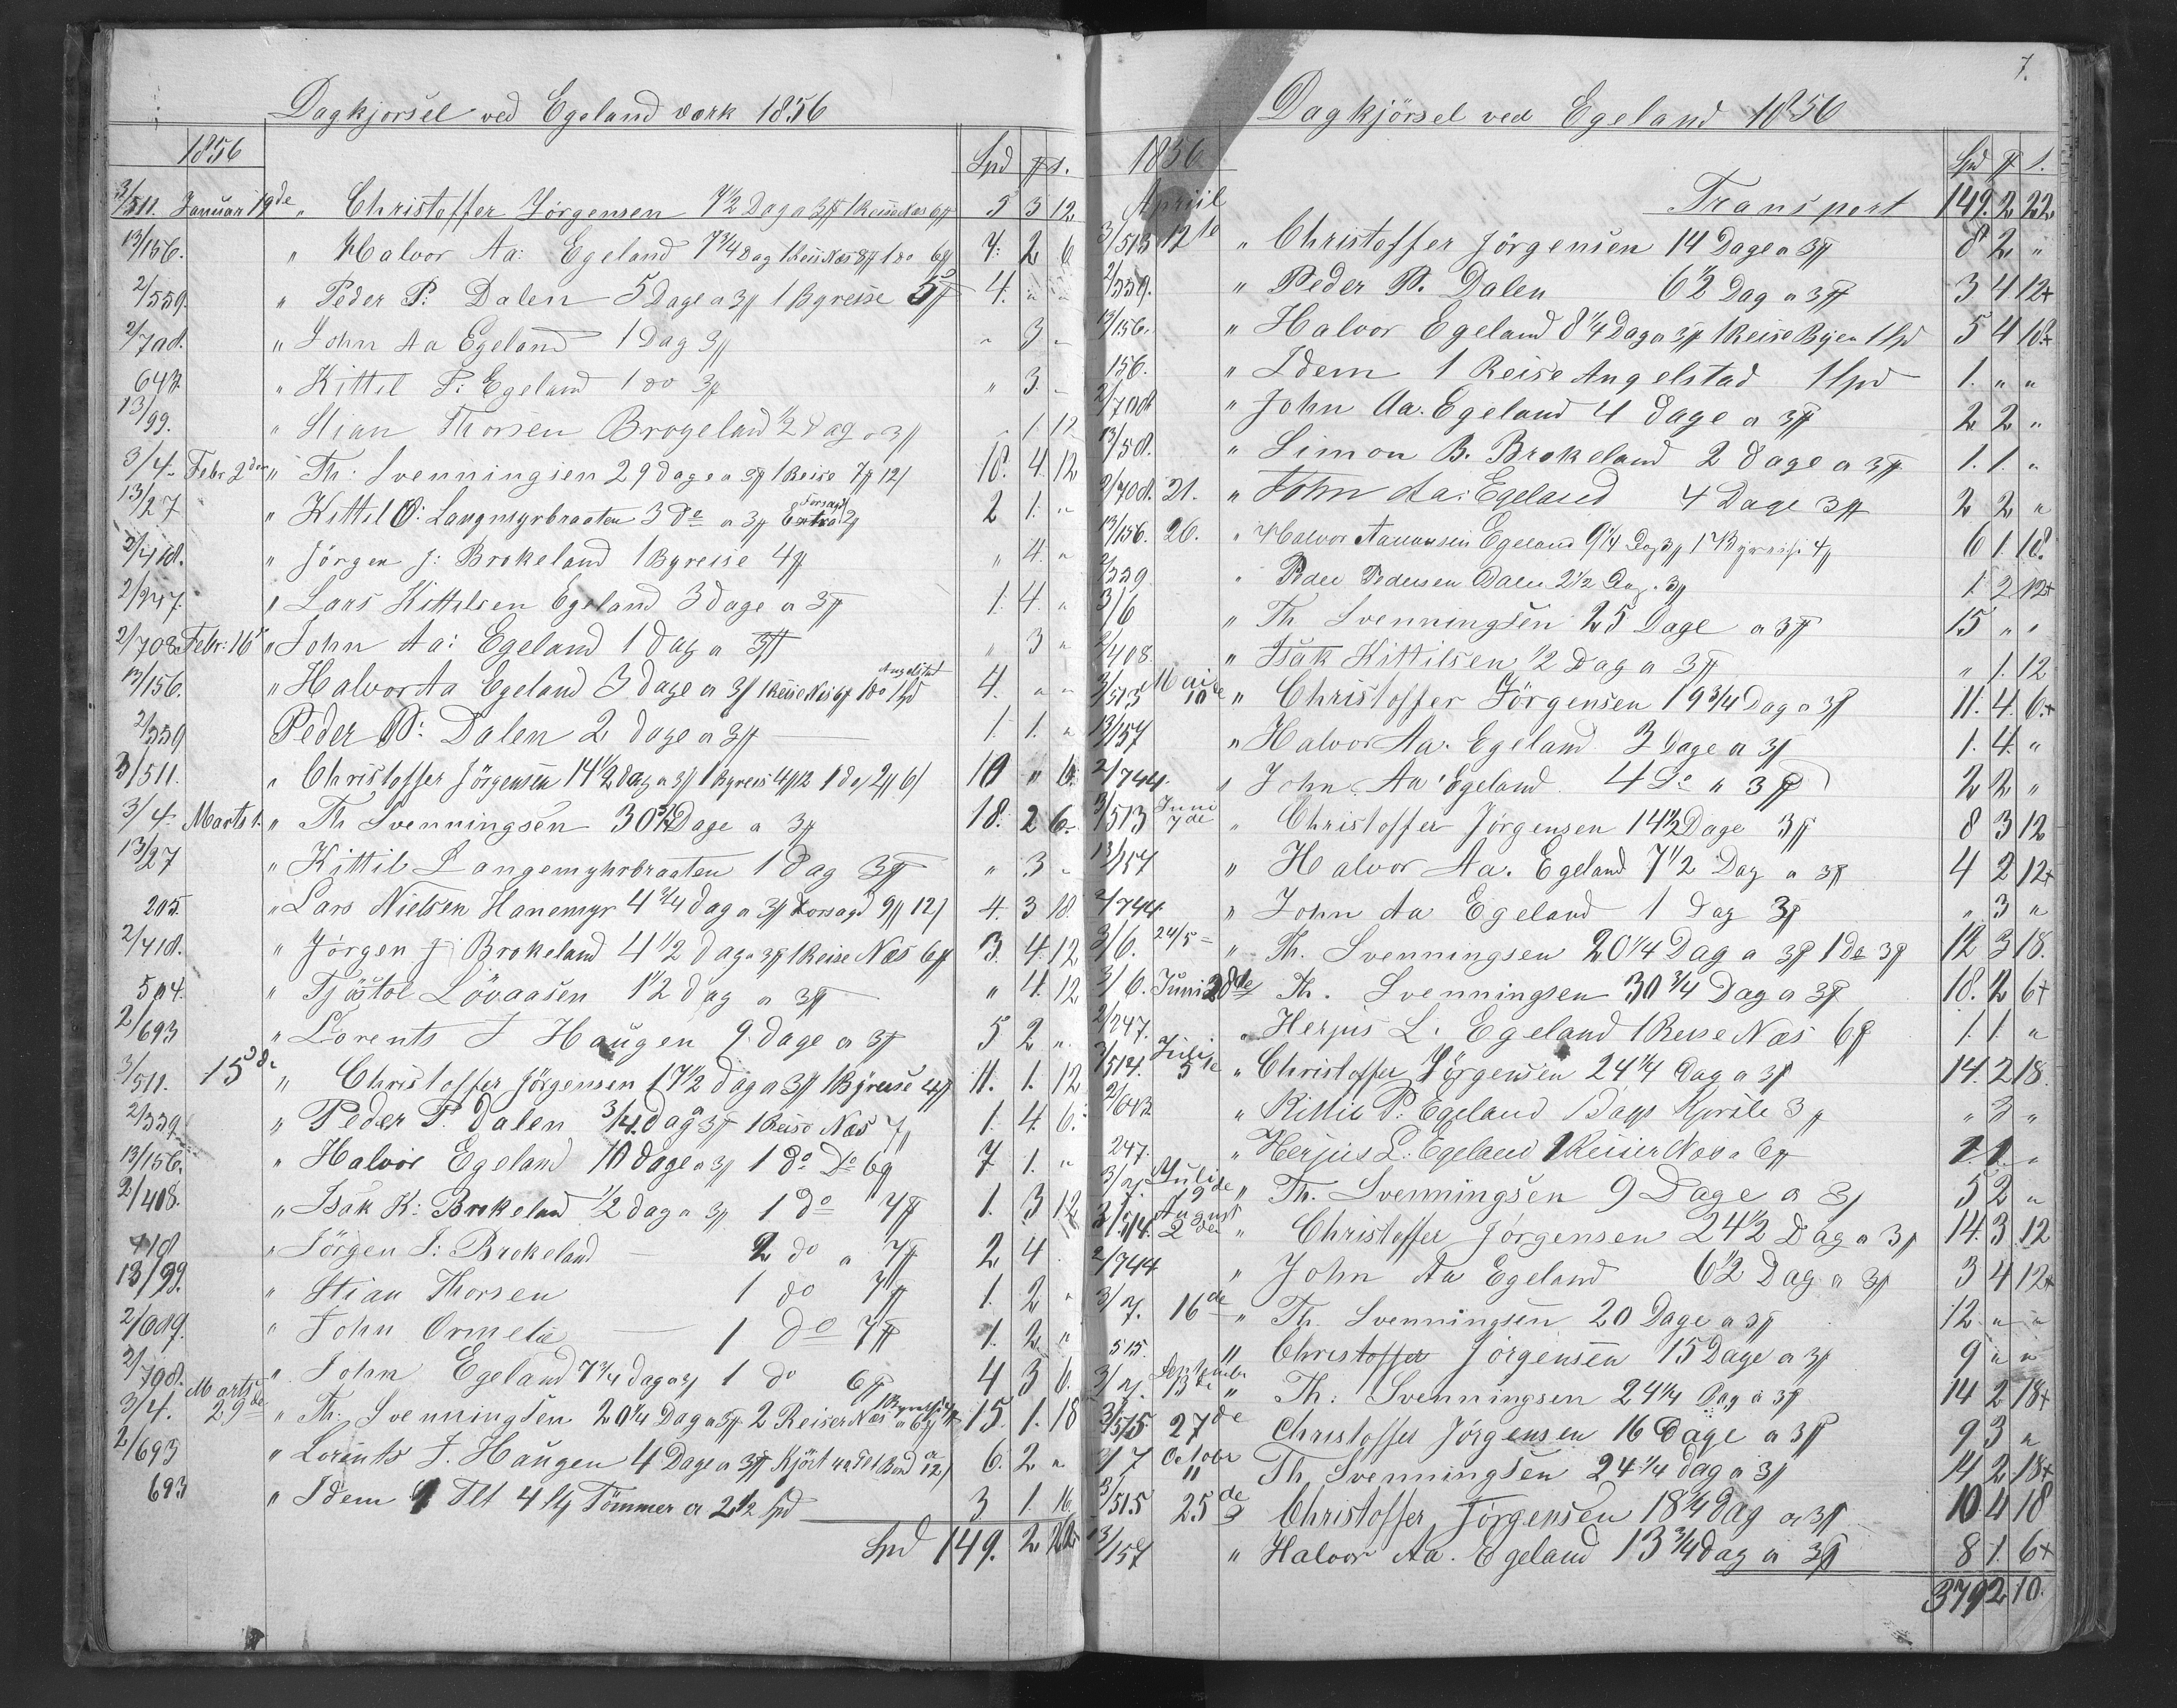 Dagkjorsel ved Egeland værk 1856
1856 Spd ℔ s.
3/511. Januar 19de " Christoffer Jörgensen 7 1/2 Dag a 3℔ 1 Reise Næs 6℔ 5 3 12
13/156. " Halvor Aa: Egeland 7 3/4 Dag 1 Reise Næs 8℔ 1 do 6℔ 7. 2 6
2/559. " Peder P: Dalen 5 Dage a 3℔ 1 Byreise 5℔ 4. " "
2/708. " John Aa Egeland 1 Dag 3℔ " 3 "
643. " Kittil P: Egeland 1 do 3℔ " 3. "
13/99. " Stian Thorsen Brogeland 1/2 Dag a 3℔ " 1 12
3/4. Febr 2den " Th: Svenningsen 29 dage a 3℔ 1 Reise 7℔ 12/ 18. 4. 12
13/27 " Kittil O: Langmyrbraaten 3 do a 3℔ 2 1. "
2/418. " Jörgen J: Brokeland 1 Byreise 4℔ " 4. "
2/247. " Lars Kittelsen Egeland 3 dage a 3℔ 1. 4. "
2/708. Febr: 16 " John Aa: Egeland 1 dag a 3℔ " 3 "
13/156. " Halvor Aa Egeland 3 dage a 3/ 1 Reise Næs 6℔ 1 do Angelstad 1 Spd 4. " "
2/559 Peder P: Dalen 2 dage a 3℔ 1. 1. "
3/511. " Christoffer Jörgensen 14 1/2 dag a 3/ 1 Byreis 4℔ 12 1 do 2℔ 6/ 10 " 6
3/4. Marts 1. " Th Svenningsen 30 3/4 Dage a 3℔ 18. 2 6.
13/27 " Kittil Langemyhrbraaten 1 dag 3℔ " 3 "
205. " Lars Nielsen Hanemyr 4 3/4 dag a 3℔ Forsagd 9℔ 12/ 4. 3 18.
2/418. " Jörgen J Brokeland 4 1/2 dag a 3℔ 1 Reise Næs 6℔ 3. 4. 12
504. " Tjöstol Lövaasen 1 1/2 dag a 3℔ " 4. 12
2/693 " Lorents J Haugen 9 dage a 3℔ 5 2 "
3/511. 15de " Christoffer Jörgensen 17 1/2 dag a 3℔ 1 Byreise 4℔ 11. 1. 12
2/559 " Peder P. Dalen 3/4. dag 3℔ 1 Reise Næs 7℔ 1. 4. 6.
13/156. " Halvor Egeland 10 dage a 3/ 1 do Do 6℔ 7 1. "
2/408. " Isak K: Brokeland 1/2 dag a 3℔ 1 do 7℔ 1. 3 12
418 " Jörgen J: Brokeland 2 do a 7℔ 2 4
13/99. " Stian Thorsen 1 do 7℔ 1. 2 "
2/609. " John Ormelie 1 do 7℔ 1. 2 "
2/708. " John Egeland 7 3/4 dag a 3/ 1 do 6℔ 4 3 6.
3/4. Marts 29de " Th: Svenningsen 20 1/4 Dag a 3℔ 2 Reiser Næs a 6℔ 15. 1. 18
2/693 " Lorents J. Haugen 4 Dage a 3℔ Kjört a 12/ 6. 2 "
693 " Idem 4 Tlt Tömmer a 2 1/2 Spd 3 1. 16
Spd 149. 2 22
7.
Dagkjörsel ved Egeland 1856
1856 Spd ℔ s.
Transport 149. 2 22
Apriil
3/513 12te " Christoffer Jörgensen 14 Dage a 3℔ 8 2 "
2/559. " Peder P. Dalen 6 1/2 Dag a 3℔ 3 4 12+
13/156. " Halvor Egeland 8 1/4 Dag a 3℔ 1 Reise Byen 1 Spd 5 4 18+
156. " Idem 1 Reise Angelstad 1 Spd 1. " "
2/708 " John Aa. Egeland 4 dage a 3℔ 2 2 "
13/58. " Simon B. Brokeland 2 dage a 3℔ 1. 1. "
2/708. 21. " John Aa: Egeland 4 Dage 3℔ 2 2 "
13/156. 26. " Halvor Aanonsen Egeland 9 1/4 Dag 3℔ 1 Byreise 4℔ 6 1. 18.
2/559 " Peder Pedersen Dalen 2 1/2 Dag a 3℔ 1. 2 12+
3/6 " Th Svenningsen 25 Dage a 3℔ 15 " "
2/408. " Isak Kittilsen 1/2 Dag a 3℔ " 1. 12
3/513 Mai 10de " Christoffer Jörgensen 19 3/4 Dag a 3℔ 11. 4. 6.+
13/157 " Halvor Aa. Egeland 3 Dage a 3℔ 1. 4. "
2/744. " John Aa. Egeland 4 Do a 3℔ 2 2 "
3/513 Juni 7de " Christoffer Jörgensen 14 1/2 Dage 3℔ 8 3 12
13/157 " Halvor Aa. Egeland 7 1/2 Dag a 3℔ 4 2 12+
2/744. " John Aa Egeland 1 Dag 3℔ " 3 "
3/6. 24/5 " Th. Svenningsen 20 1/4 Dag a 3℔ 1 do 3℔ 12 3 18.
3/6. Juni 28de Th. Svenningsen 30 3/4 Dag a 3℔ 18. 2 6+
2/247. " Herjus L. Egeland 1 Reise Næs 6℔ 1. 1. "
3/514. Juli 5te " Christoffer Jörgensen 24 1/4 dag a 3℔ 14. 2 18.
2/643 " Kittil P: Egeland 1 Dags Kjörsle 3℔ " 3 "
247. " Herjus L: Egeland 1 Reise Næs a 6℔ 1. 1. "
3/7. Juli 19de " Th. Svenningsen 9 Dage a 3/ 5 2 "
3/514. August 2den " Christoffer Jörgensen 24 1/2 Dag a 3℔ 14. 3. 12
2/744 " John Aa Egeland 6 1/2 Dag a 3℔ 3 4 12+
3/7. 16de " Th. Svenningsen 20 Dage a 3℔ 12 " "
515. " Christoffer Jörgensen 15 Dage a 3℔ 9 " "
3/7. September 13de " Th: Svenningsen 24 1/4 Dag a 3℔ 14 2 18+
3/515 27de Christoffer Jörgensen 16 Dage a 3℔ 9 3 "
3/7 October 11 Th. Svenningsen 24 1/4 dag a 3℔ 14 2 18+
3/515 25de Christoffer Jörgensen 18 1/4 dag a 3℔ 10 4 18
13/157 " Halvor Aa. Egeland 13 3/4 dag a 3℔ 8 1. 6+
379 2 10.